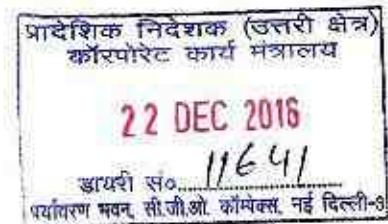 प्रादेशिक निदेशक (उत्तरी क्षेत्र)
कॉरपोरेट कार्य मंत्रालय
22 DEC 2016
डायरी सं०..11641
पर्यावरण भवन, सी.जी.ओ. कॉम्पेक्स, नई दिल्ली-3